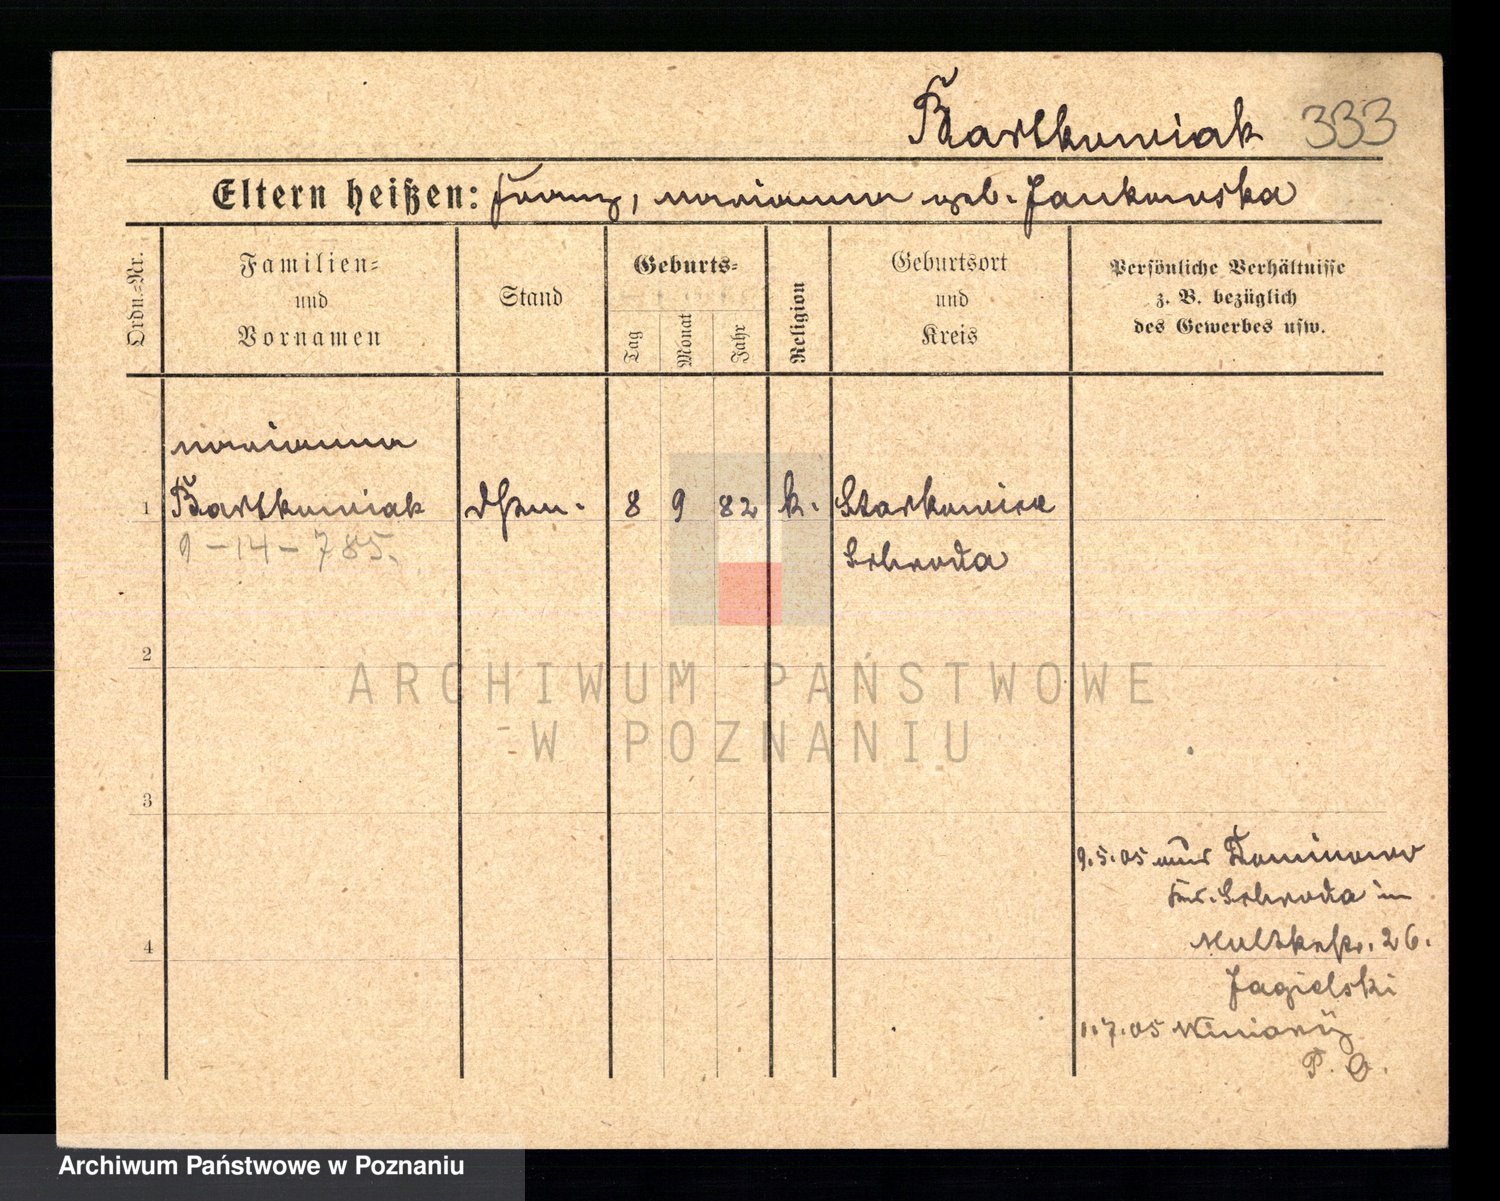 Bartkowiak 333
Eltern heißen: Franz, Marianna geb. Jankowska
Ordn.-Nr.
Familien-
und
Vornamen
Stand
Geburts-
Tag
Monat
Jahr
Religion
Geburtsort
und
Kreis
Persönliche Verhältnisse
z. B. bezüglich
des Gewerbes usw.
Marianna
1 Bartkowiak 8 9 82 k. Starkowice
9-14-785. Schroda
2
ARCHIWUM PAŃSTWOWE
W POZNANIU
3
9.5.05 aus Dominowo
Krs. Schroda in
4 Moltkestr. 26.
Jagielski
1.7.05 Winiary
P. O.
Archiwum Państwowe w Poznaniu